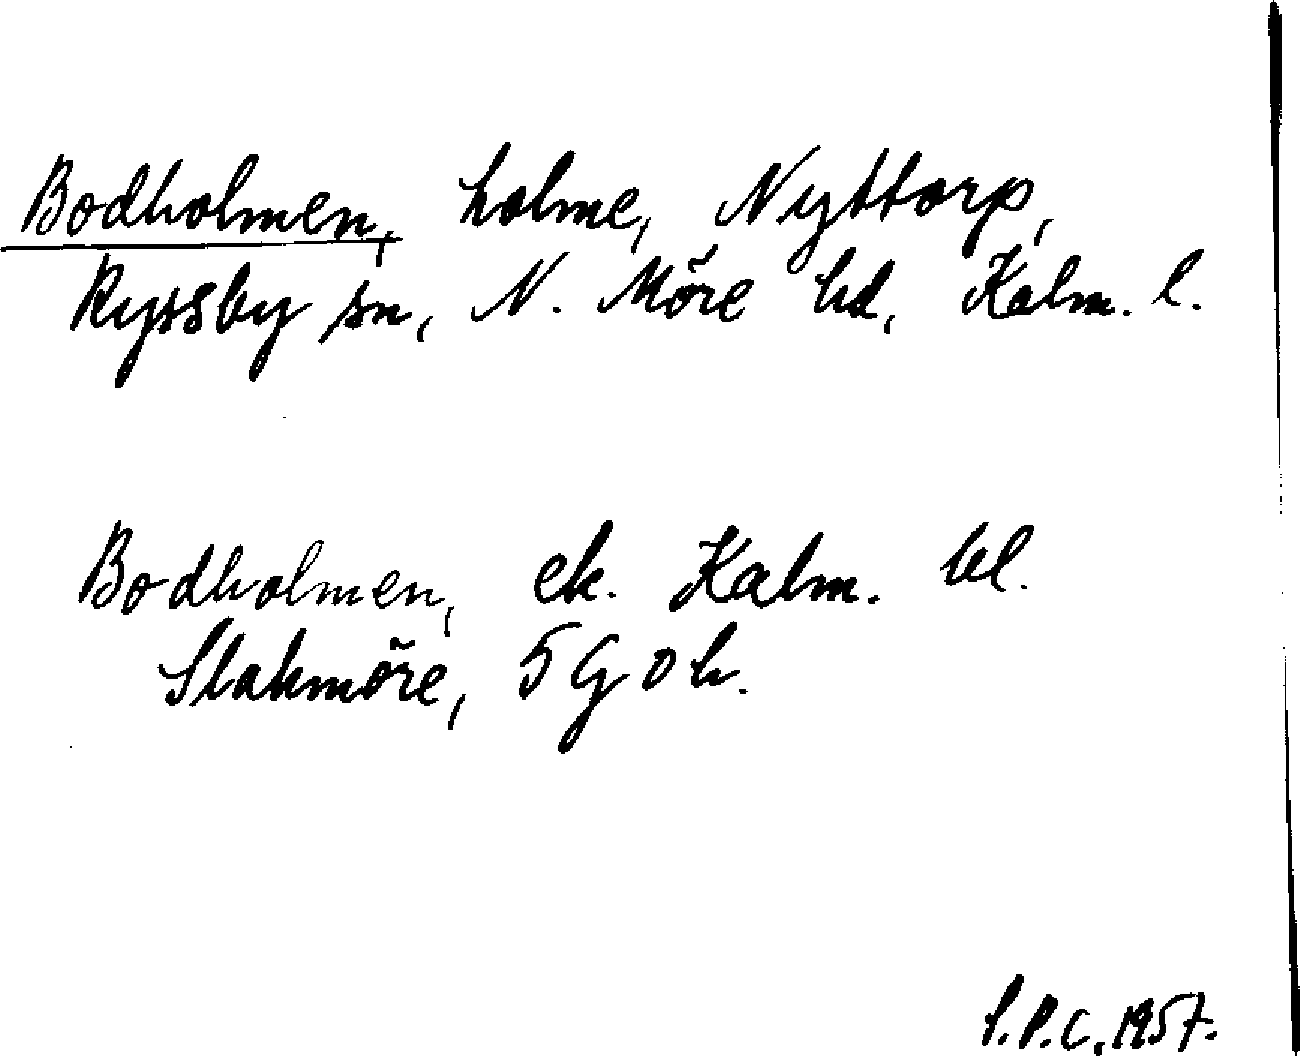 Bodholmen, holme, Nyttorp,
Ryssby sn, N. Möre hd, Kalm. l.
Bodholmen, ek. Kalm. bl.
Slakmöre, 5 G o h.
S.P.C. 1957.